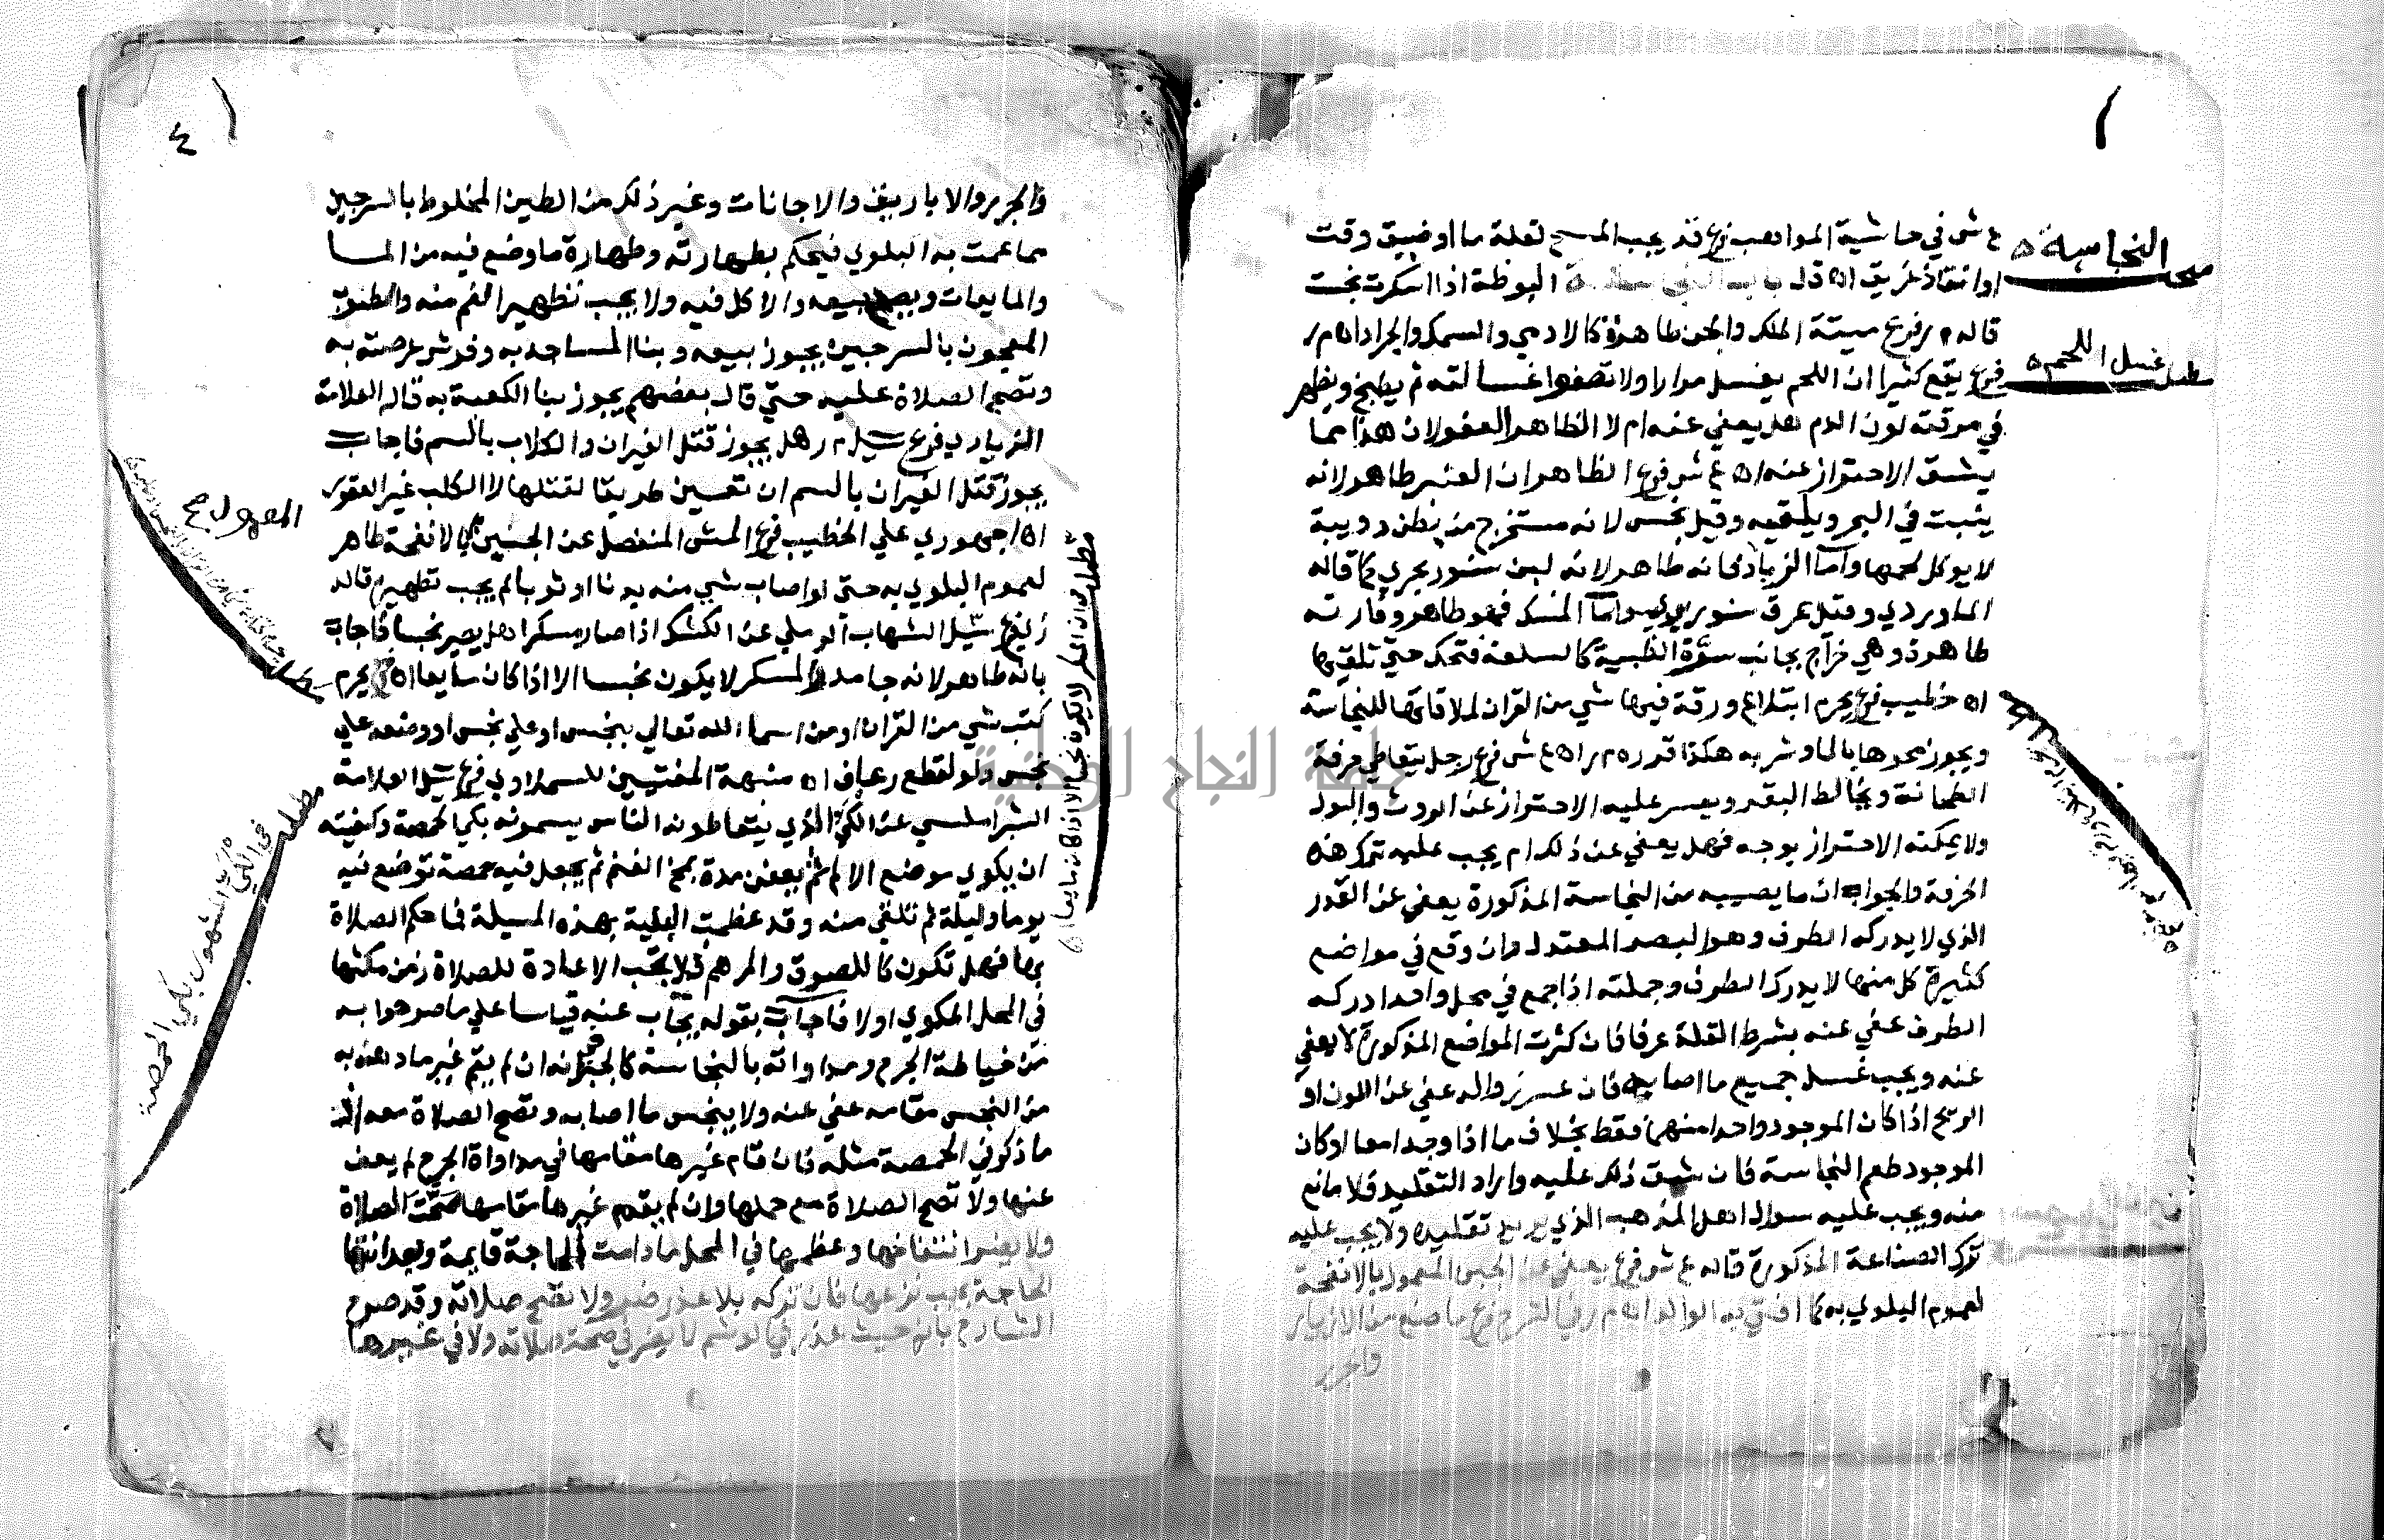 النجاسة
ع ش في حاشية المواهب فرع قد يجب المسح لقلة ما او ضيق وقت
او انقاذ غريق اه قال باب البوظة اذا اسكرت نجست
قاله م ر فرع ميتة الملك والجن طاهرة كالادمي والسمك والجراد اه م ر
غسل اللحم
فرع يقع كثيرا ان اللحم يغسل مرارا ولا تصفوا غسالته ثم يطبخ ويظهر
في مرقته لون الدم هل يعفي عنه ام لا الظاهر العفو لان هذا مما
يشق الاحتراز عنه اه ع ش فرع الظاهر ان العنبر طاهر لانه
ينبت في البحر ويلقيه وقيل نجس لانه مستخرج من بطن دويبة
لا يوكل لحمها واما الزباد فانه طاهر لانه لبن سنور بحري كما قاله
الماوردي وقيل عرق سنور بري واما المسك فهو طاهر وفارته
طاهرة وهي خراج بجانب سرة الظبية كالسلعة فتحتك حتي تلقيها
اه خطيب فرع يحرم ابتلاع ورقة فيها شي من القران لملاقاتها للنجاسة
ويجوز محوها بالما وشربه هكذا قرره م ر اه ع ش فرع رجل يتعاطي حرفة
الطحانة ويخالط البقر ويعسر عليه الاحتراز عن الروث والبول
ولا يمكنه الاحتراز بوجه فهل يعفي عن ذلك ام يجب عليه ترك هذه
الحرفة والجواب ان ما يصيبه من النجاسة المذكورة يعفي عن القدر
الذي لا يدركه الطرف وهو البصر المعتدل وان وقع في مواضع
كثيرة كل منها لا يدركه الطرف وجملته اذا جمع في محل واحد ادركه
الطرف عفي عنه بشرط القلة عرفا فان كثرت المواضع المذكورة لا يعفي
عنه ويجب غسل جميع ما اصابه فان عسر زواله عفي عن اللون او
الريح اذا كان الموجود واحدا منهما فقط بخلاف ما اذا وجدا معا او كان
الموجود طعم النجاسة فان شق ذلك عليه واراد التقليد فلا مانع
منه ويجب عليه سوال اهل المذهب الذي يريد تقليده ولا يجب عليه
ترك الصناعة المذكورة قاله ع ش فرع يعفي عن الجبن المعمول بالانفحة
لعموم البلوي به كما افتي به الوالد اه م ر في الشرح فرع ما صنع من الازيار
والجرر
٤
والجرر والاباريق والاجانات وغير ذلك من الطين المخلوط بالسرجين
مما عمت به البلوي فيحكم بطهارته وطهارة ما وضع فيه من الما
والمايعات ويصح بيعه والاكل فيه ولا يجب تطهير الفم منه والطوب
المعجون بالسرجين يجوز بيعه وبنا المساجد به وفرش عرصته به
وتصح الصلاة عليه حتي قال بعضهم يجوز بنا الكعبة به قاله العلامة
الزيادي فرع سيل م ر هل يجوز قتل الفيران والكلاب بالسم فاجاب
يجوز قتل الفيران بالسم ان تعين طريقا لقتلها لا الكلب غير العقور
اه اجهوري علي الخطيب فرع المش المنفصل عن الجبن بالانفحة طاهر
لعموم البلوي به حتي لو اصاب شي منه بدنا او ثوبا لم يجب تطهيره قاله
ز ي فرع سيل الشهاب الرملي عن الكشك اذا صار مسكرا هل يصير نجسا فاجاب
بانه طاهر لانه جامد والمسكر لا يكون نجسا الا اذا كان مايعا اه يحرم
كتب شي من القران او من اسما الله تعالي بنجس او علي نجس او وضعه علي
نجس ولو لقطع رعاف اه منبهة المفتيين للسملاوي فرع سيل العلامة
الشبراملسي عن الكي الذي يتعاطونه الناس يسمونه بكي الحمصة وكيفيته
ان يكوي موضع الالم ثم يعفن مدة بمخ الغنم ثم يجعل فيه حمصة توضع فيه
يوما وليلة ثم تلقي منه وقد عظمت البلية بهذه المسيلة فما حكم الصلاة
بها فهل تكون كاللصوق والمرهم فلا يجب الاعادة للصلاة زمن مكثها
في المحل المكوي اولا فاجاب بقوله يجاب عنه قياسا علي ما صرحوا به
من خياطة الجرح ومداواته بالنجاسة كالجبر انه ان لم يقم غير ما دهن به
من النجس مقامه عفي عنه ولا ينجس ما اصابه وتصح الصلاة معه
ما ذكر في الحمصة مثله فان قام غيرها مقامها في مداواة الجرح لم يعف
عنها ولا تصح الصلاة مع حملها وان لم يقم غيرها مقامها صحت الصلاة
ولا يضر انتفاخها وعظمها في المحل ما دامت الحاجة قايمة وبعد انتها
الحاجة يجب نزعها فان تركه بلا عذر ضر ولا تصح صلاته وقد صرح
الشارح بانه حيث عذر في الوشم لا يضر في صحة صلاته ولا في غيرها
المعمول
مطلب ان المسكر لا يكون نجسا الا اذا كان مايعا اه
مطلب
في الكي المشهور بكي الحمصة
جامعة النجاح الوطنية